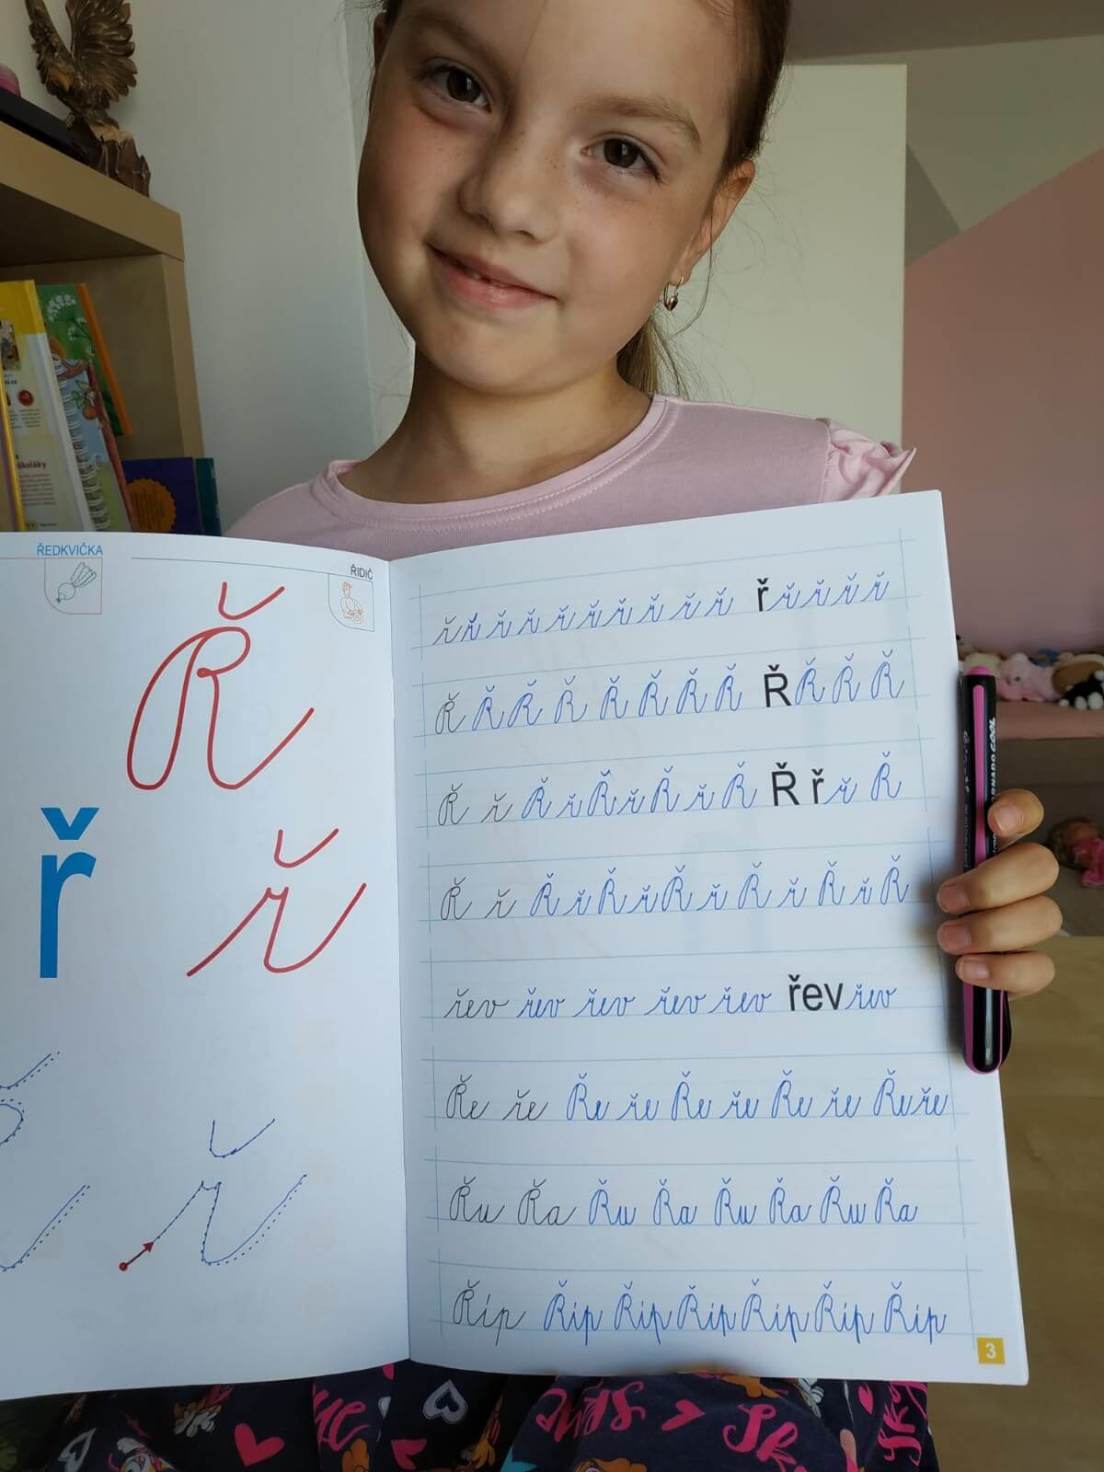 ŘEDKVIČKA
ŘIDIČ
Ř
ř
ř
ř ř ř ř ř ř ř ř ř ř ř ř ř ř ř
Ř Ř Ř Ř Ř Ř Ř Ř Ř Ř Ř Ř
Ř ř Ř ř Ř ř Ř ř Ř Ř ř ř Ř
Ř ř Ř ř Ř ř Ř ř Ř ř Ř ř Ř
řev řev řev řev řev řev řev
Ře ře Ře ře Ře ře Ře ře Ře ře
Řu Řa Řu Řa Řu Řa Řu Řa
Říp Říp Říp Říp Říp Říp Říp
3
ř